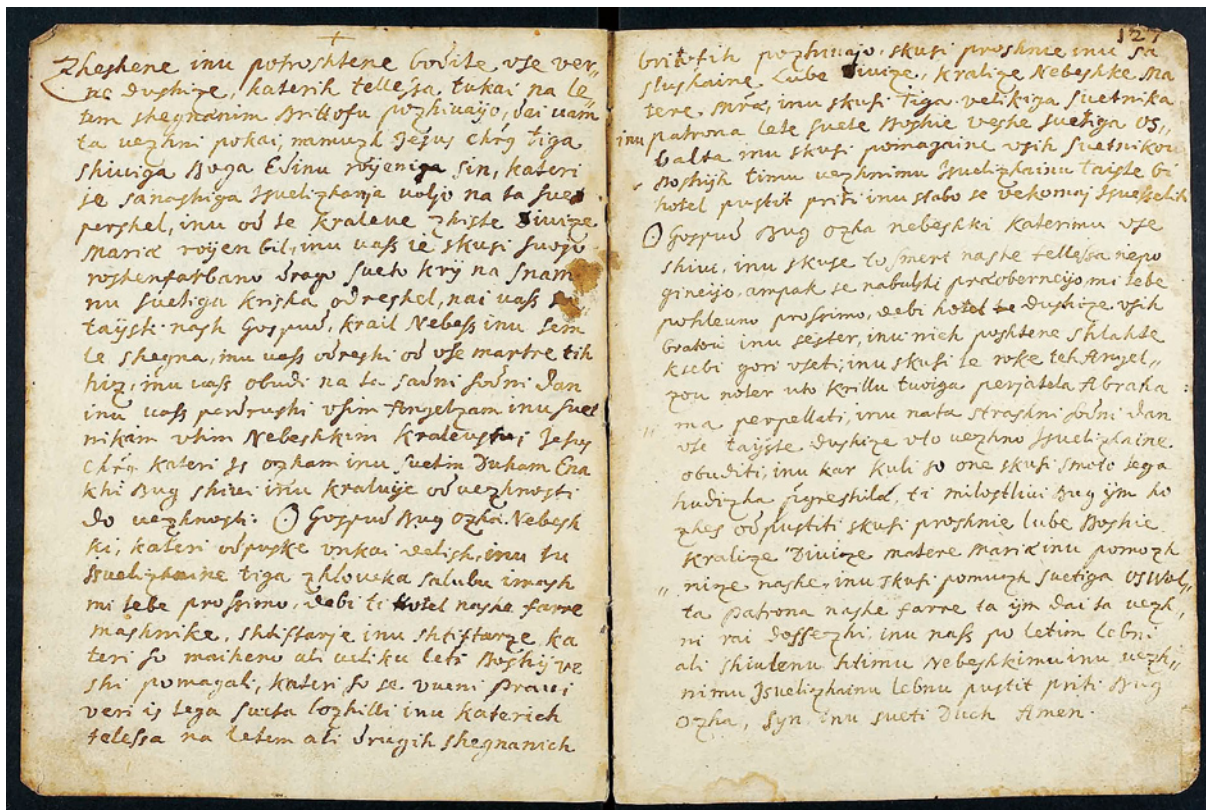 Zheshene inu potroshtene bodite vse ver„
ne dushize, katerih tellessa tukai na le„
tem shegnanim Brittofu pozhivaijo, dai vam
ta vezhni pokai, inu muzh Jesus Chrs tiga
shiviga Boga Edinu roijeniga sin, kateri
je sanashiga Isvelizhanja volio na ta svet
pershel, inu od te Kraleve zhiste Divize
Mariæ roijen bil, inu vass ie skusi svojo
roshenfarbano drago sveto krij na snam„
nu svetiga krisha odreshel, nai vass
taijsti nash Gospud, krail Nebess inu sem
le shegna, inu vass odreshi od vse martre tih
hiz, inu vass obudi na ta sadni sodni dan
inu vass perdrushi vsim Angelzam inu svet
nikam vtim Nebeshkim kralevstvi Jesus
Chrs kateri is ozham inu svetim Duham Ena
khi Bug shivi inu kraluije od vezhnosti
do vezhnosti. O Gospud Bug ozha Nebesh
ki, kateri odpuske vnkai delish, inu tu
Isvelizhaine tiga zhloveka salubu imash
mi tebe prossimo, debi ti hotel nashe farre
mashnike, shtiftarje inu shtiftarze ka
teri so maiheno ali veliku leti Boshij ve
shi pomagali, kateri so se vueni pravi
veri is tega sveta lozhilli inu katerich
telessa na letem ali drugih shegnanich
127
britofih pozhivajo, skusi proshnie inu sa
slushaine Lube Divize, kralize Nebeshke Ma
tere Mræ, inu skusi tiga velikiga svetnika
inu patrona lete svete Boshie veshe svetiga Os„
balta inu skusi pomagaine vsih svetnikou
Boshijh timu vezhnimu Isvelizhainu taiste bi
hotel pustit priti inu stabo se vekomaj Isvesselit
O Gospud Bug ozha nebeshki katerimu vse
shivi, inu skuse to smert nashe tellessa nepo
gineijo, ampak se nabulshi preoberneijo, mi tebe
pohleuno prossimo, debi hotel te dushize vsih
bratou inu sester, inu nich poshtene shlahte
ksebi gori vseti, inu skusi te roke teh Angel„
zou noter vto krillu tvoiga perjatela Abraha
„ ma perpellati, inu nata strashni sodni dan
vse taijste dushize vto vezhno Isvelizhaine
obuditi, inu kar kuli so one skusi smoto tega
hudizha figreshilæ, ti milostlivi Bug ijm ho
zhes odpustiti skusi proshnie lube Boshie
kralize Divize matere Mariæ inu pomozh
„ nize nashe, inu skusi pomuzh svetiga Oswol„
ta patrona nashe farre ta ijm dai ta vezh„
ni rai dossezhi, inu nass po letim lebni
ali shivlenu htimu Nebeshkimu inu vezh„
nimu Isvelizhainu lebnu pustit priti Bug
Ozha, Syn, inu sveti Duch Amen.